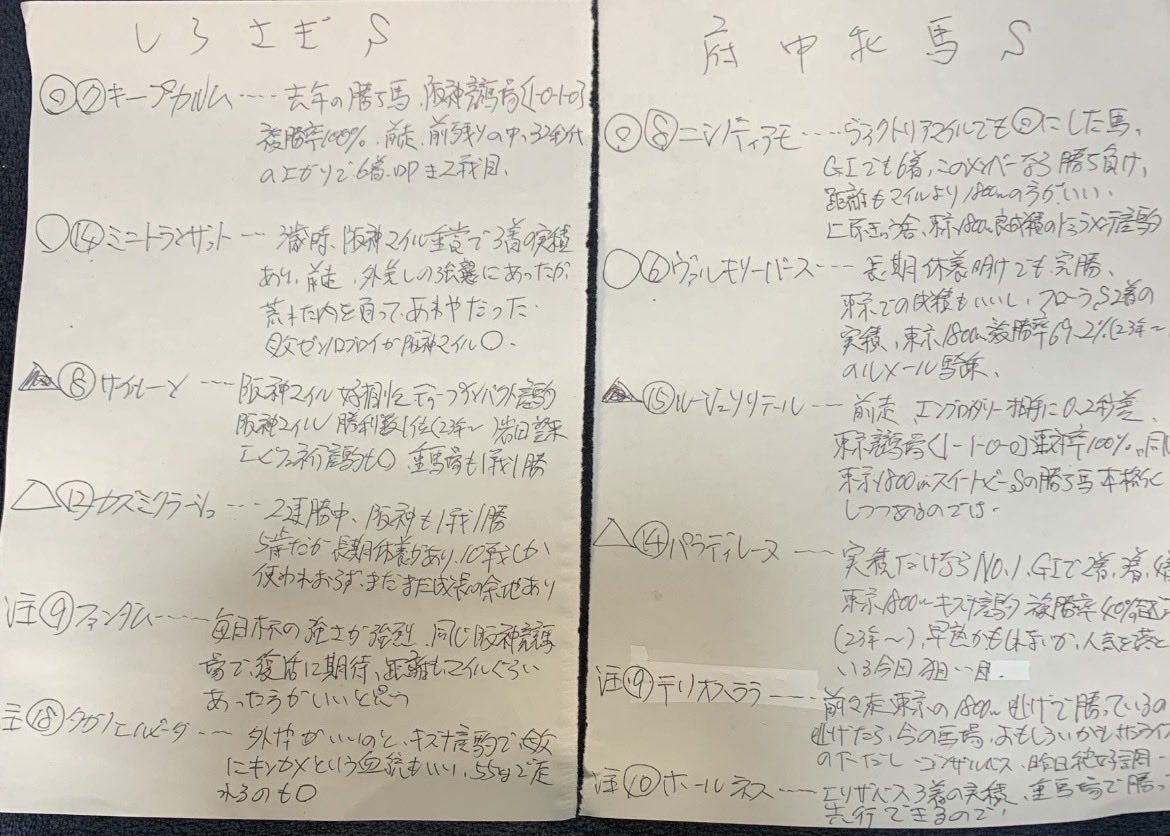 しらさぎS
◎⑦キープカルム…… 去年の勝ち馬、阪神競馬場(1-0-1-0)
複勝率100%。前走、前残りの中、32秒代
の上がりで6着。叩き2戦目。
○⑭ミニトランザット…… 3歳時、阪神マイル重賞で3着の実績
あり、前走、外差しの強襲にあったが
荒れた内を通って、あわやだった。
母父ゼンノロブロイが阪神マイル○。
▲⑧サイルーン…… 阪神マイル好相性ディープインパクト産駒
阪神マイル勝利数1位(23年〜 岩田望来
エピファネイア産駒も○ 重馬場も1戦1勝
△⑫カズミクラーシュ…… 2連勝中、阪神も1戦1勝
5歳だが長期休養があり、10戦しか
使われおらず、まだまだ成長の余地あり
注⑨ファンダム…… 毎日杯の強さが強烈、同じ阪神競馬
場で、復活に期待、距離もマイルぐらい
あったほうがいいと思う
注⑱タガノエルピーダ…… 外枠がいいのと、キズナ産駒で、母父
にキンカメという血統もいい、55kgで走
れるのも○
府中牝馬S
◎⑧ニシノティアモ…… ヴィクトリアマイルでも◎にした馬、
GIでも6着、このメンバーなら勝ち負け、
距離もマイルより1800mの方がいい。
上原佑舎、東京1800m良成績のドゥラメンテ産駒
○⑥ヴァルキリーバース…… 長期休養明けでも完勝、
東京での成績もいいし、フローラS2着の
実績、東京1800m複勝率69.2%(23年〜
のルメール騎乗、
▲⑮ルージュソリテール…… 前走、エンブロイダリー相手に0.2秒差、
東京競馬場(1-1-0-0)連対率100%、同じ
東京1800mスイートピーSの勝ち馬 本格化
しつつあるのでは。
△⑭パラディレーヌ…… 実績だけならNO.1、GIで2着、3着、4着
東京1800mキズナ産駒複勝率40%超え
(23年〜)、早熟かもしれないが、人気を落と
いる今回狙い目。
注⑨テリオスララ…… 前々走東京の1800m逃げで勝っているの
逃げたら、今の馬場、おもしろいかも
ゴンザルベス、昨日絶好調
注⑩ホールネス…… エリザベス3着の実績、重馬場で勝っ
先行できるので